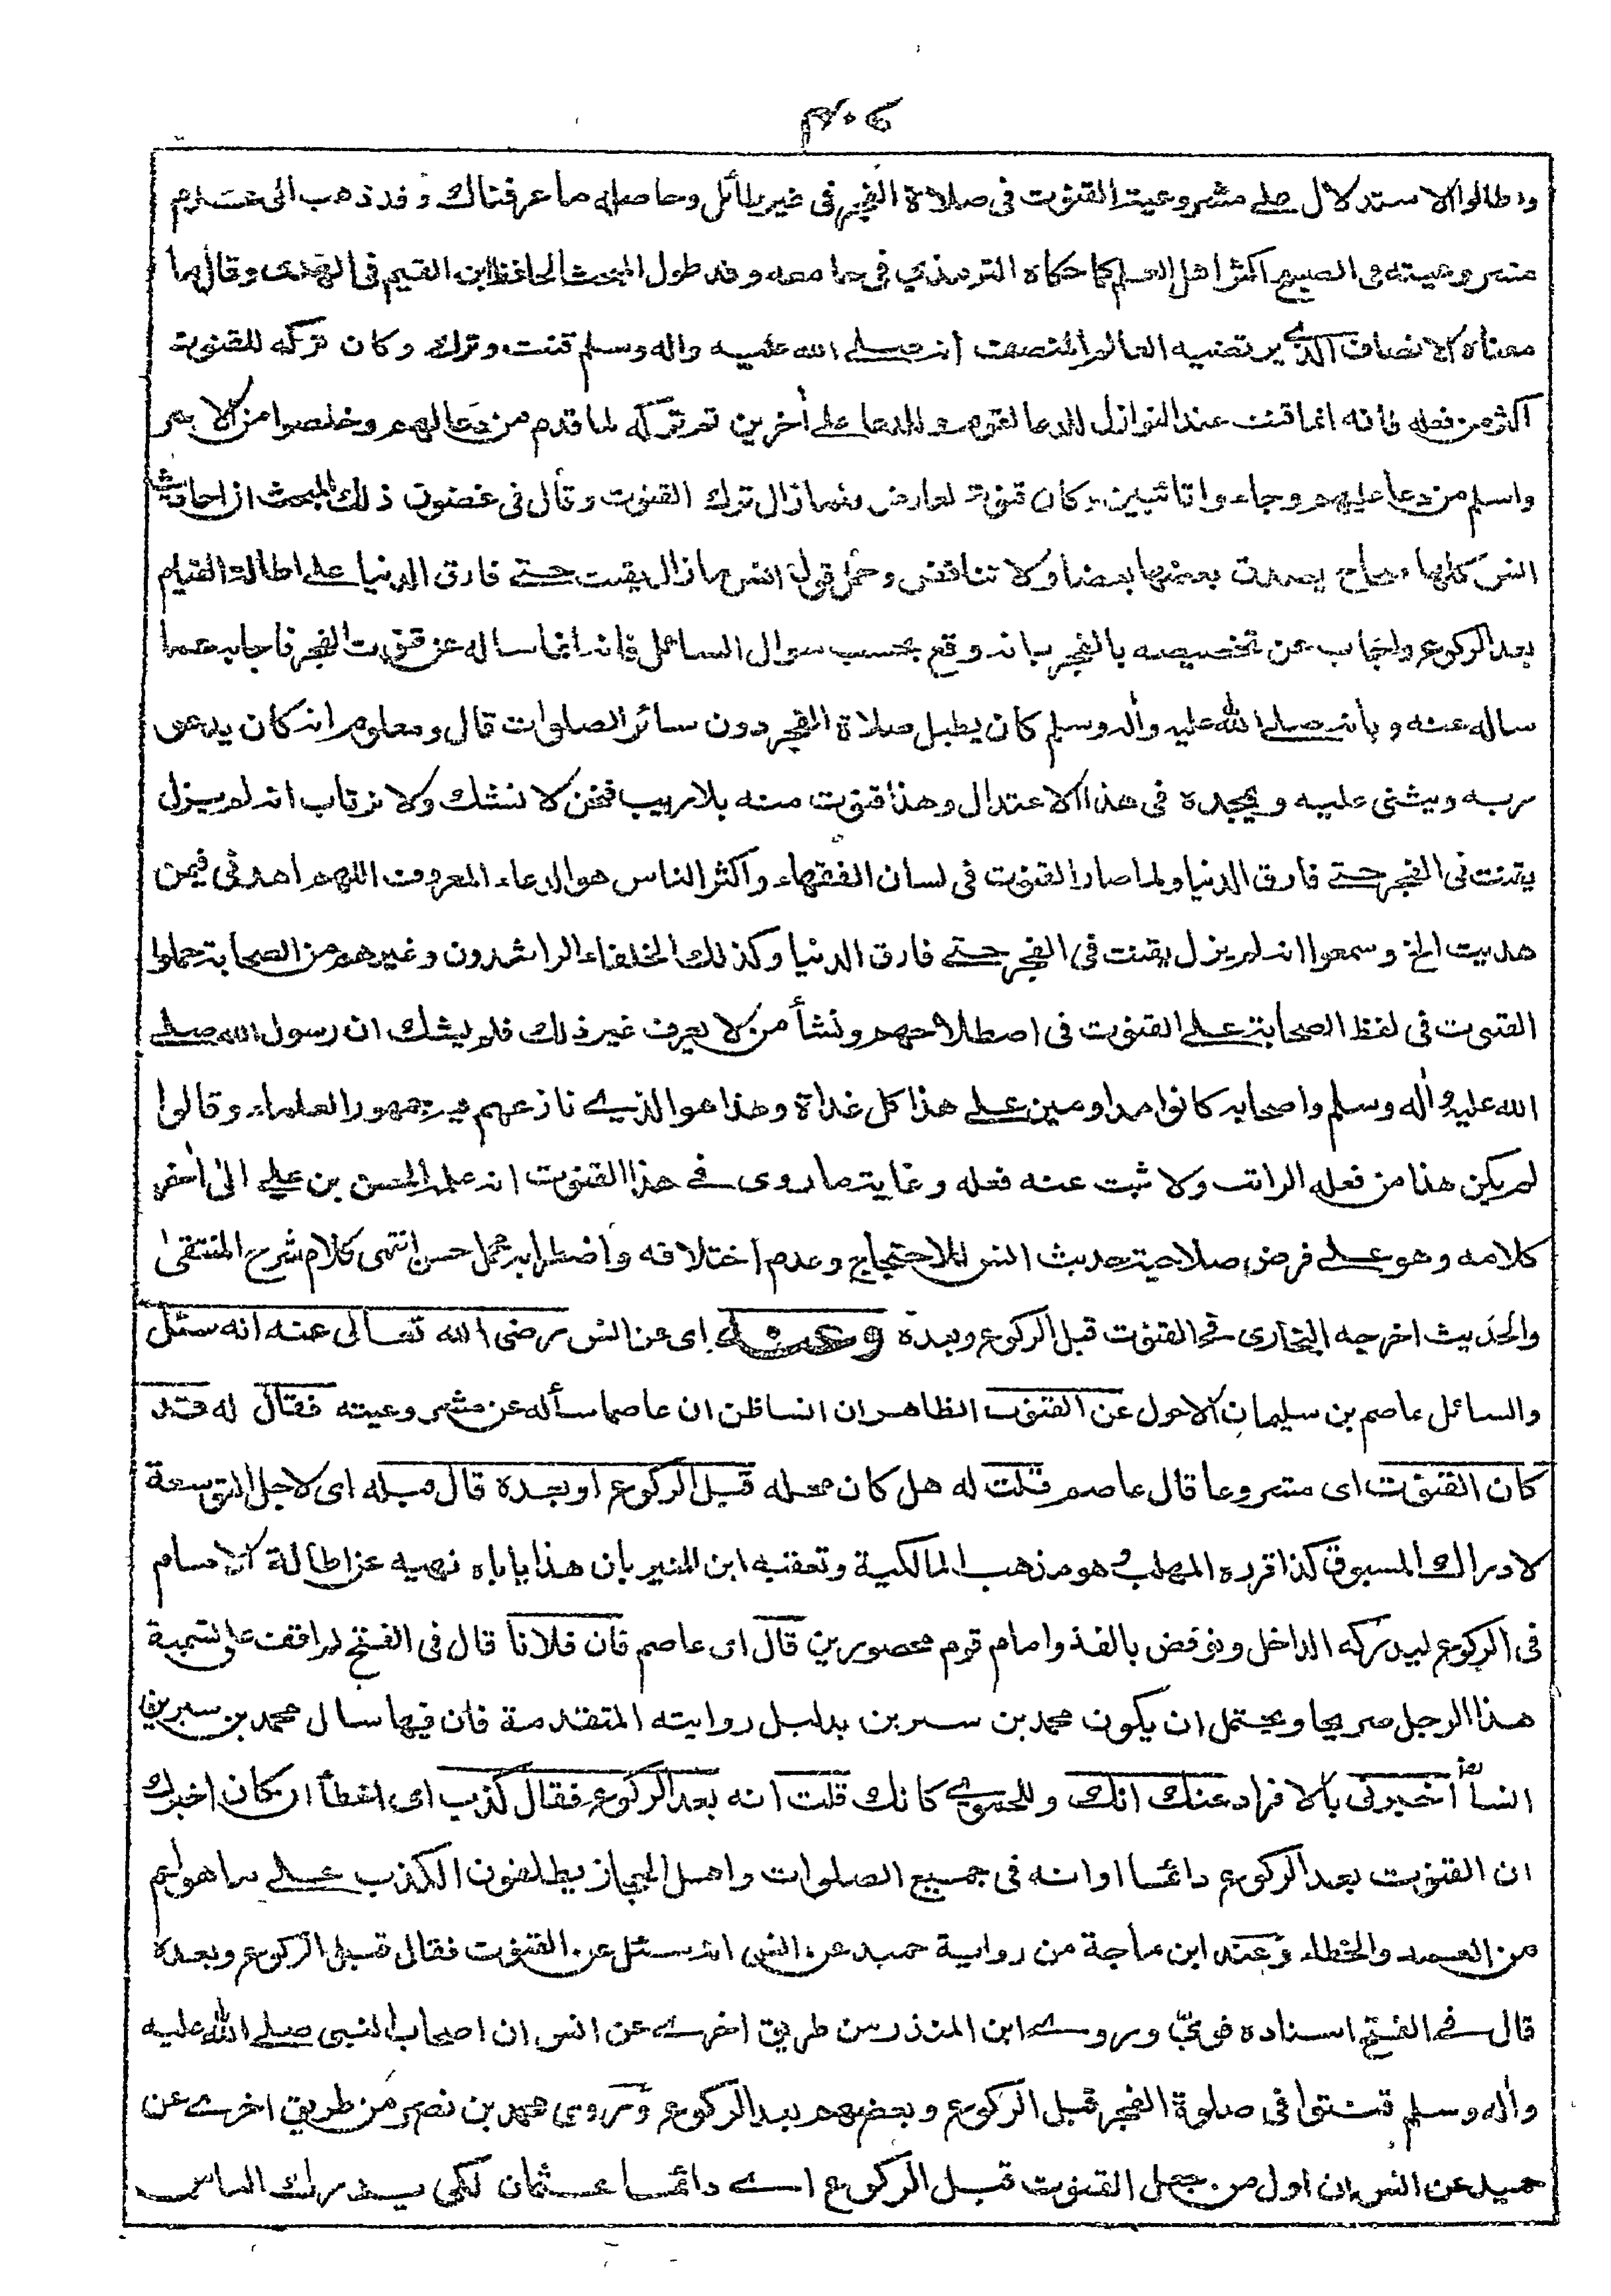 ٤٠٦
واطالوا الاستدلال على مشروعية القنوت فى صلاة الفجر فى غير طائل وحاصله ما عرفناك وقد ذهب الى عدم
مشروعيته فى الصبح اكثر اهل العلم كما حكاه الترمذي فى جامعه وقد طول المبحث الحافظ ابن القيم فى الهدى وقال ما
معناه الانصاف الذي يرتضيه العالم المنصف انه صلى الله عليه واله وسلم قنت وترك وكان تركه للقنوت
اكثر من فعله فانه انما قنت عند النوازل للدعا لقوم وللدعا على اٰخرين ثم تركه لما قدم من دعا لهم وخلصوا من الاسر
واسلم من دعا عليهم وجاءوا تائبين وكان قنوته لعارض فلما زال ترك القنوت وقال فى غضون ذلك المبحث ان احاديث
انس كلها صحاح يصدق بعضها بعضا ولا تناقض وحمل قول انس ما زال يقنت حتى فارق الدنيا على اطالة القيام
بعد الركوع واجاب عن تخصيصه بالفجر بانه وقع بحسب سوال السائل فانه انما ساله عن قنوت الفجر فاجابه عما
ساله عنه وبانه صلى الله عليه واٰله وسلم كان يطيل صلاة الفجر دون سائر الصلوات قال ومعلوم انه كان يدعو
ربه ويثنى عليه ويمجده فى هذا الاعتدال وهذا قنوت منه بلا ريب فنحن لا نشك ولا نرتاب انه لم يزل
يقنت فى الفجر حتى فارق الدنيا ولما صار القنوت فى لسان الفقهاء واكثر الناس هو الدعاء المعروف اللهم اهدنى فيمن
هديت الخ وسمعوا انه لم يزل يقنت فى الفجر حتى فارق الدنيا وكذلك الخلفاء الراشدون وغيرهم من الصحابة حملوا
القنوت فى لفظ الصحابة على القنوت فى اصطلاحهم ونشأ من لا يعرف غير ذلك فلم يشك ان رسول الله صلى
الله عليه واٰله وسلم واصحابه كانوا مداومين على هذا كل غداة وهذا هو الذي نازعهم فيه جمهور العلماء وقالوا
لم يكن هذا من فعله الراتب ولا ثبت عنه فعله وغاية ما روى في هذا القنوت انه علمه الحسن بن علي الى اٰخر
كلامه وهو على فرض صلاحية حديث انس للاحتجاج وعدم اختلافه واضطرابه محمل حسن انتهى كلام شرح المنتقى
والحديث اخرجه البخارى فى القنوت قبل الركوع وبعده وعنه اى عن انس رضى الله تعالى عنه انه سئل
والسائل عاصم بن سليمان الاحول عن القنوت الظاهر ان انسا ظن ان عاصما سأله عن مشروعيته فقال له قد
كان القنوت اى مشروعا قال عاصم قلت له هل كان محله قبل الركوع او بعده قال قبله اى لاجل التوسعة
لادراك المسبوق كذا قرره المهلب وهو مذهب المالكية وتعقبه ابن المنير بان هذا ياباه نهيه عن اطالة الامام
فى الركوع ليدركه الداخل ونوقض بالفذ وامام قوم محصورين قال اى عاصم فان فلانا قال فى الفتح لم اقف على تسمية
هذا الرجل صريحا ويحتمل ان يكون محمد بن سيرين بدليل روايته المتقدمة فان فيها سال محمد بن سيرين
انسا أخبرنى بالافراد عنك انك وللحموي كانك قلت انه بعد الركوع فقال كذب اى اخطأ ان كان اخبرك
ان القنوت بعد الركوع دائما او انه فى جميع الصلوات واهل الحجاز يطلقون الكذب على ما هو اعم
من العمد والخطاء وعند ابن ماجة من رواية حميد عن انس انه سئل عن القنوت فقال قبل الركوع وبعده
قال في الفتح اسناده قويّ وروى ابن المنذر من طريق اخرى عن انس ان اصحاب النبى صلى الله عليه
واٰله وسلم قنتوا فى صلوة الفجر قبل الركوع وبعضهم بعد الركوع وروى محمد بن نصر من طريق اخرى عن
حميد عن انس ان اول من جعل القنوت قبل الركوع اي دائما عثمان لكى يدرك الناس